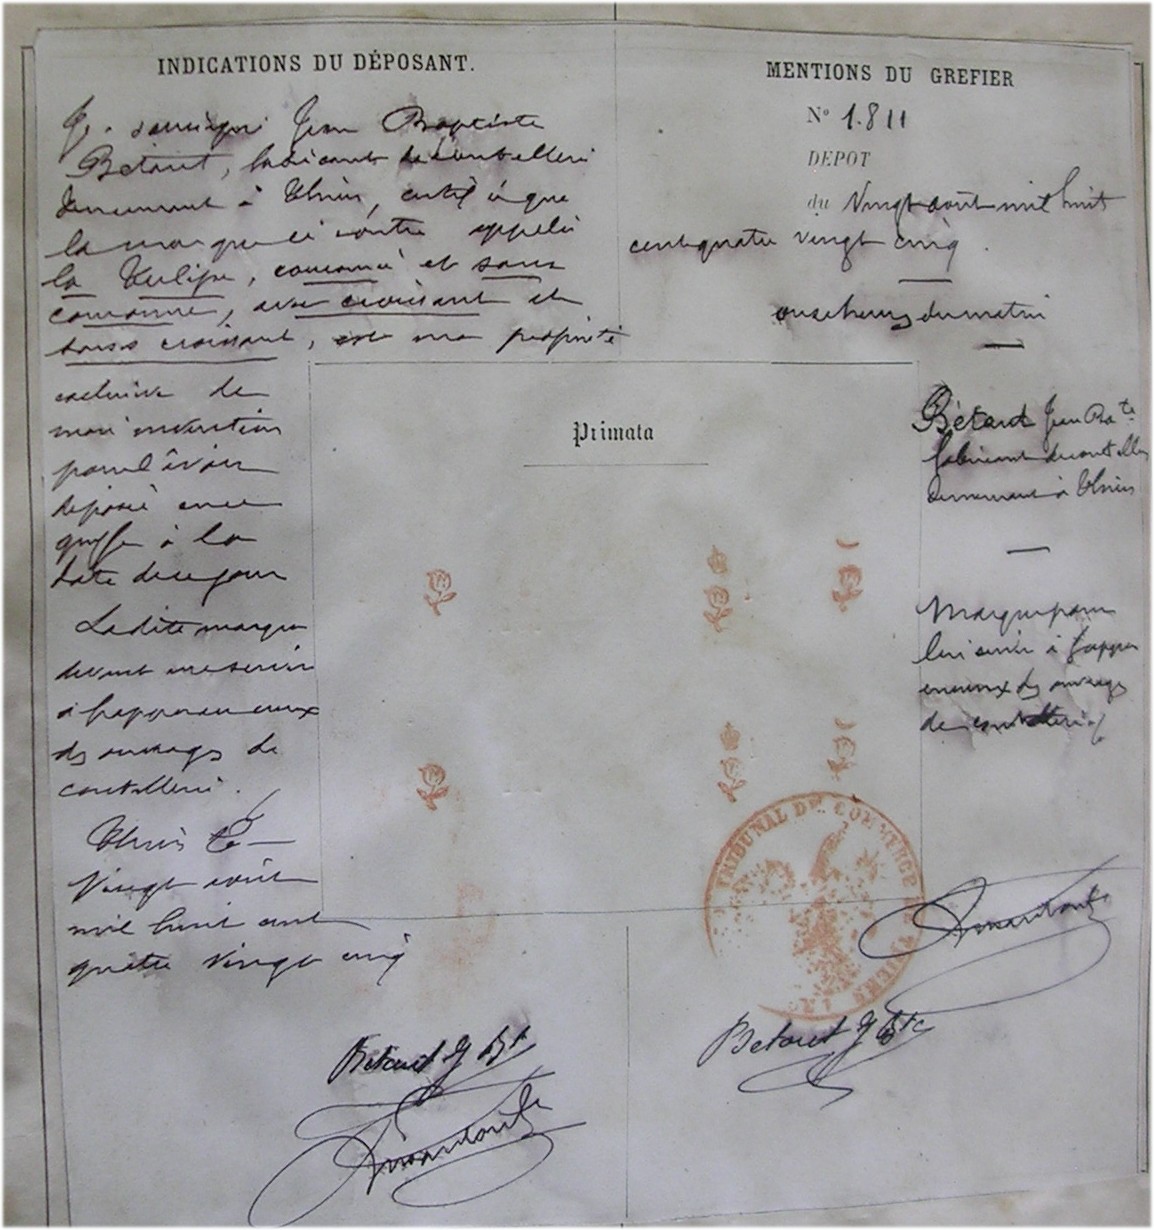 INDICATIONS DU DÉPOSANT.
Je soussigné Jean Baptiste
Betant, fabricant de coutellerie
demeurant à Thiers, certifie que
la marque ci contre appelée
la Tulipe, couronné et sans
couronne, avec croissant et
sans croissant, est ma propriété
exclusive de
mon invention
pour l'avoir
déposée en ce
greffe à la
date de ce jour
La dite marque
devant me servir
à frapper au creux
des ouvrages de
coutellerie.
Thiers le
vingt août
mil huit cent
quatre vingt cinq
Betant J Bte
MENTIONS DU GREFIER
No 1.811
DEPOT
du Vingt août mil huit
cent quatre vingt cinq.
onze heures du matin
Bétant Jean Bate
fabricant de coutellerie
demeurant à Thiers
Marque pour
lui servir à frapper
en creux des ouvrages
de coutellerie
Primata
TRIBUNAL DE COMMERCE DE THIERS
Betant J Bte